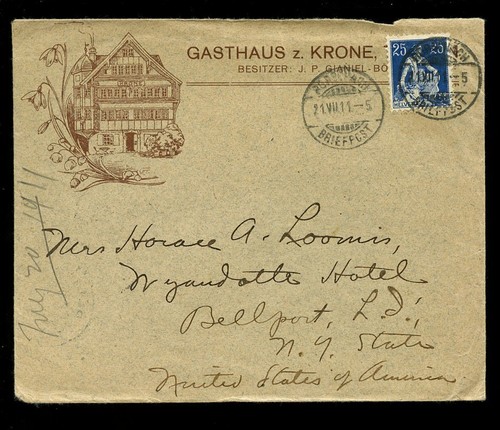 GASTHAUS z. KRONE,
BESITZER: J. P. GIANIEL-BO
25 25
21.VII.11.–5
BRIEFPOST
5
BRIEFPOST
Mrs Horace A. Loomis,
Wyandotte Hotel
Bellport, L. I.,
N. Y. State
United States of America